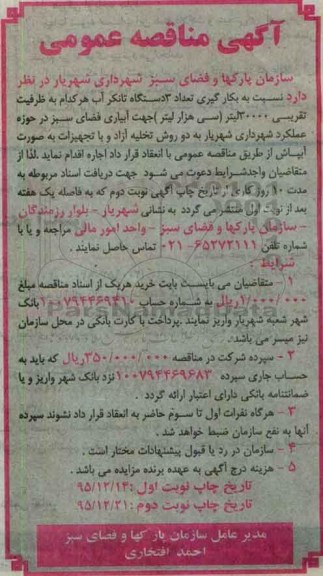 آگهی مناقصه عمومی
سازمان پارکها و فضای سبز شهرداری شهریار در نظر
دارد نسبت به بکار گیری تعداد ۳دستگاه تانکر آب هرکدام به ظرفیت
تقریبی ۳۰۰۰۰لیتر (سی هزار لیتر )جهت آبیاری فضای سبز در حوزه
عملکرد شهرداری شهریار به دو روش تخلیه آزاد و با تجهیزات به صورت
آبپاش از طریق مناقصه عمومی با انعقاد قرار داد اجاره اقدام نماید .لذا از
متقاضیان واجدشرایط دعوت می شود جهت دریافت اسناد مربوطه به
مدت ۱۰ روز کاری از تاریخ چاپ آگهی نوبت دوم که به فاصله یک هفته
بعد از نوبت اول منتشر می گردد به نشانی شهریار - بلوار رزمندگان
- سازمان پارکها و فضای سبز - واحد امور مالی مراجعه و یا با
شماره تلفن ۶۵۲۷۲۱۱۱- ۰۲۱ تماس حاصل نمایند .
شرایط :
۱ - متقاضیان می بایست بابت خرید هریک از اسناد مناقصه مبلغ
۱/۰۰۰/۰۰۰ریال به شماره حساب ۱۰۰۷۹۴۴۶۹۴۱۰ بانک
شهر شعبه شهریار واریز نمایند .پرداخت با کارت بانکی در محل سازمان
نیز میسر می باشد.
۲ - سپرده شرکت در مناقصه ۳۵۰/۰۰۰/۰۰۰ریال که باید به
حساب جاری سپرده ۱۰۰۷۹۴۴۶۹۶۸۳نزد بانک شهر واریز و یا
ضمانتنامه بانکی دارای اعتبار ارائه گردد .
۳ - هرگاه نفرات اول تا سوم حاضر به انعقاد قرار داد نشوند سپرده
آنها به نفع سازمان ضبط خواهد شد .
۴ - سازمان در رد یا قبول پیشنهادات مختار است .
۵ - هزینه درج آگهی به عهده برنده مزایده می باشد .
تاریخ چاپ نوبت اول :۹۵/۱۲/۱۴
تاریخ چاپ نوبت دوم :۹۵/۱۲/۲۱
مدیر عامل سازمان پارکها و فضای سبز
احمد افتخاری
ParsNamadData